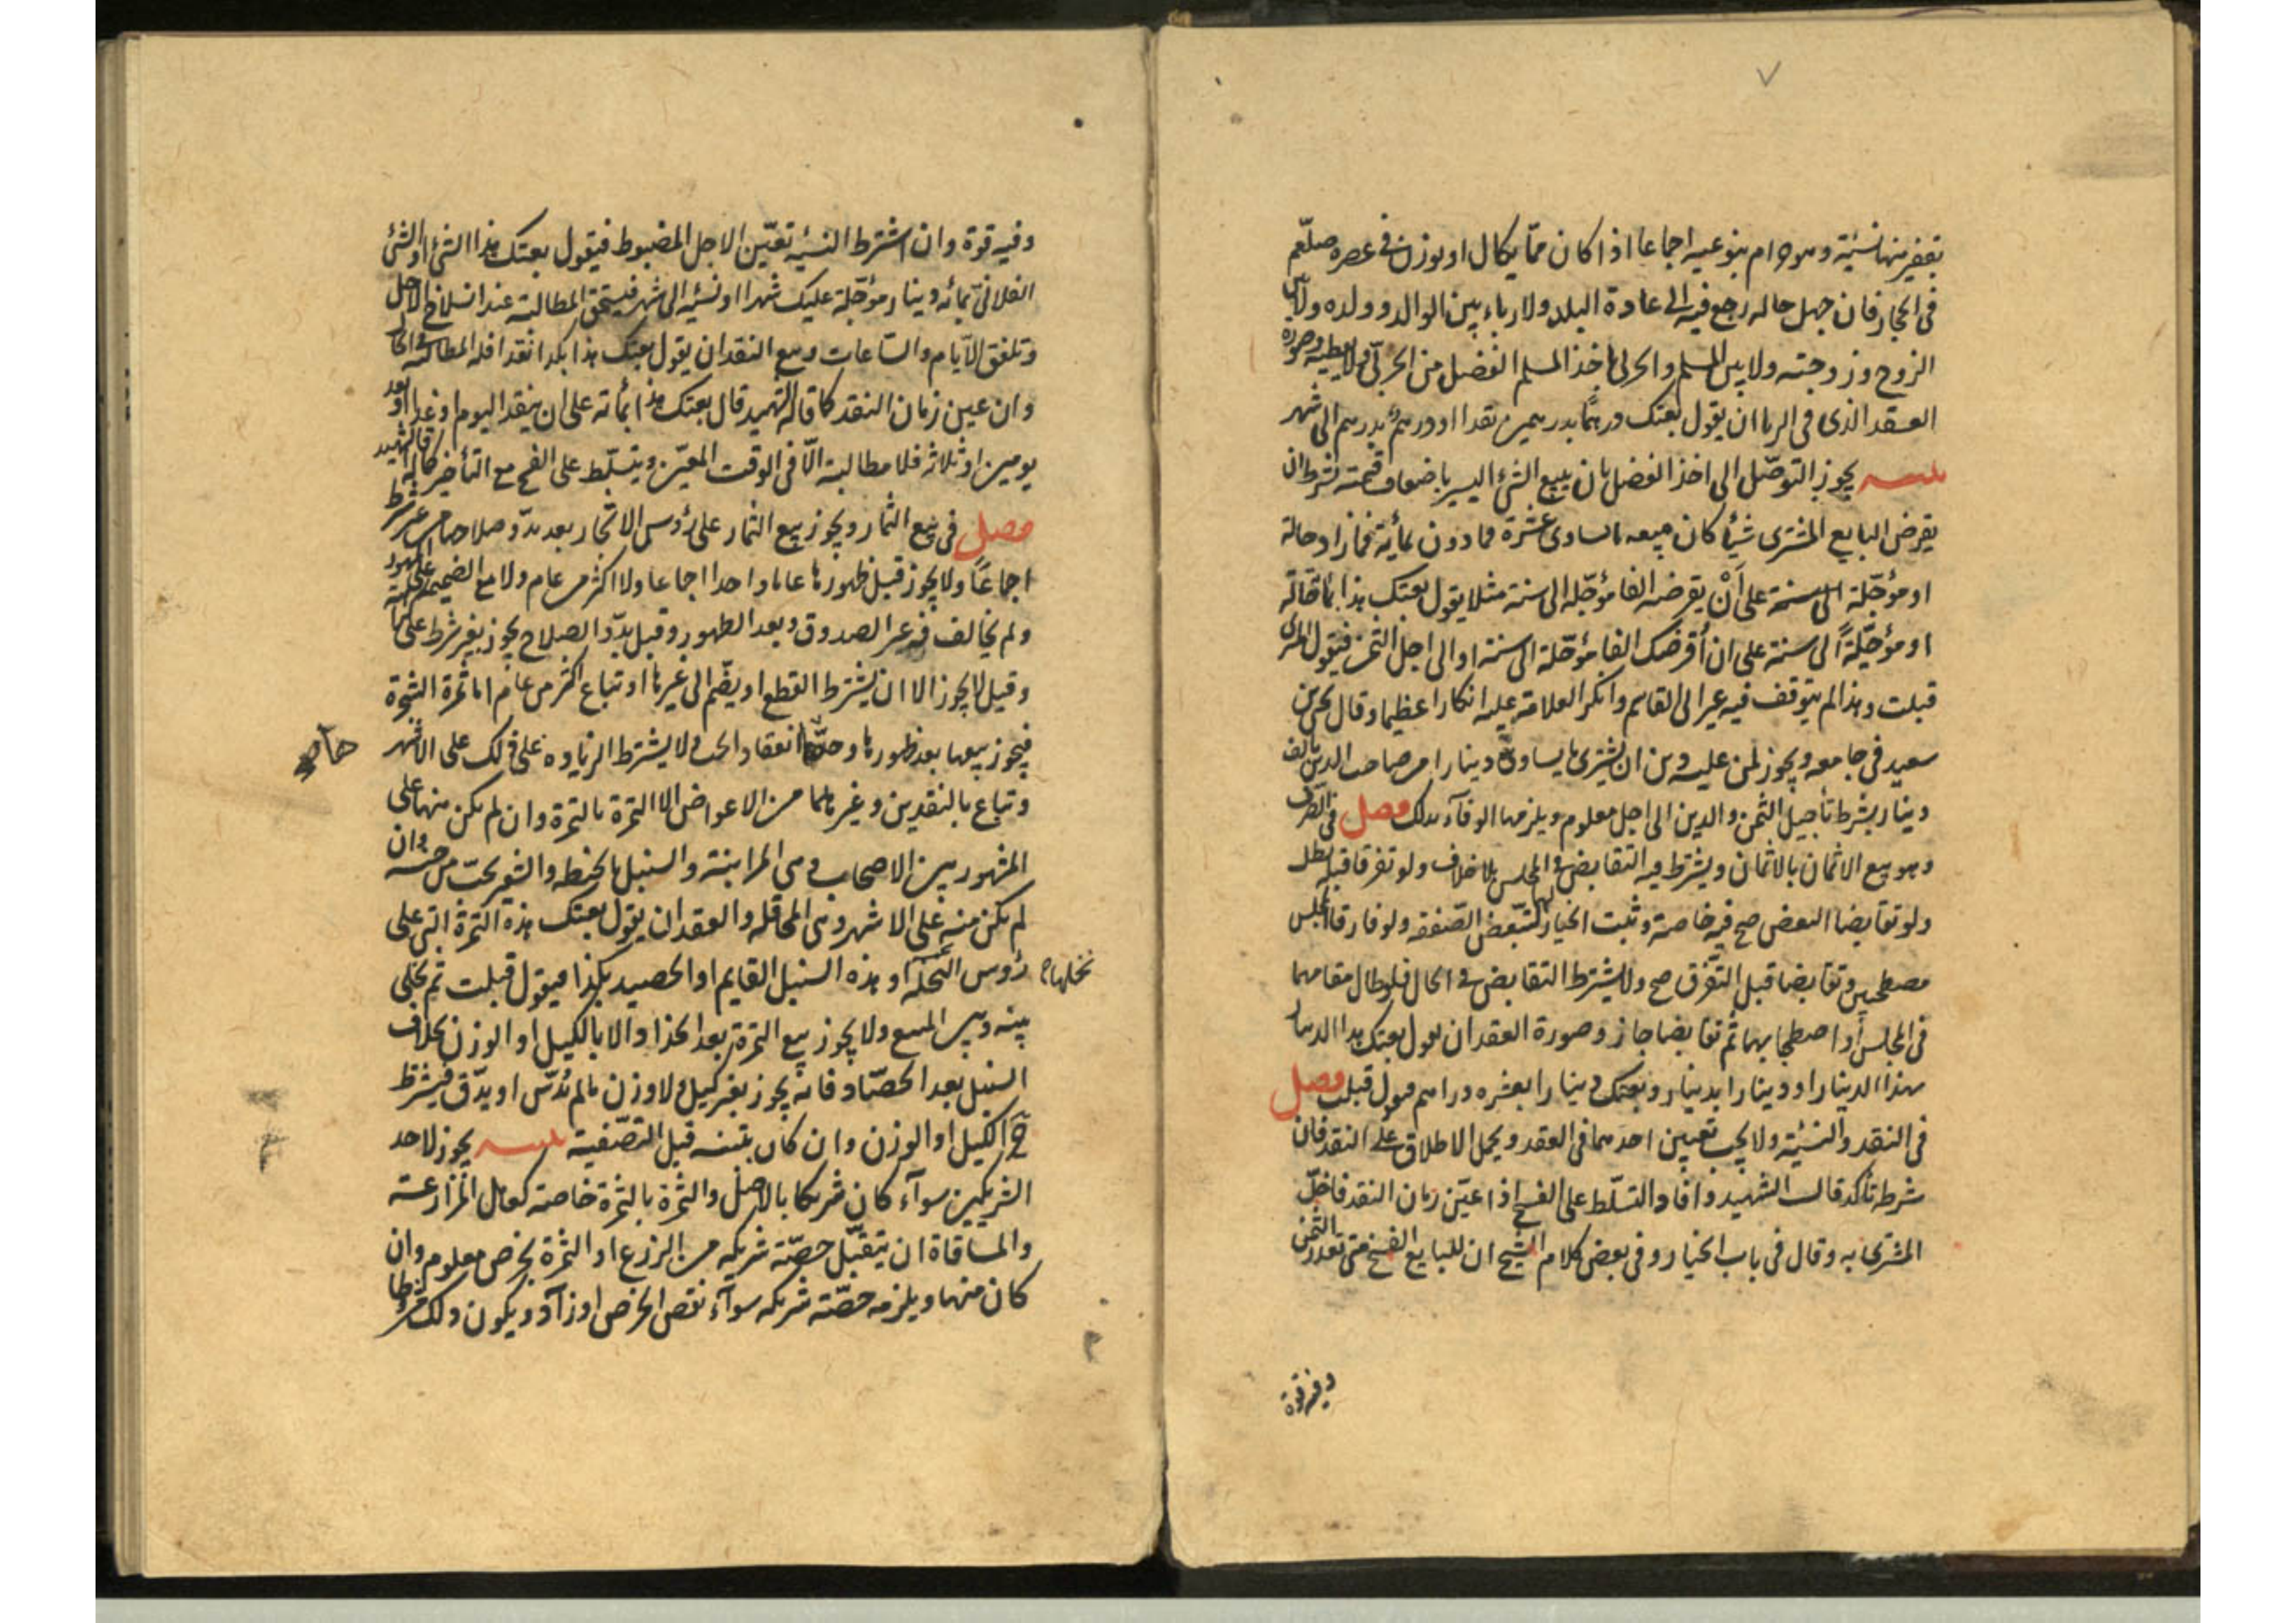 بقفيز منها نسية وهو حرام بنوعيه اجماعا اذا كان مما يكال او يوزن فى عصره صلعم
فى الحجاز فان جهل حاله رجع فيه الى عادة البلد ولا رباء بين الوالد وولده ولا بين
الزوج وزوجته ولا بين المسلم والحربى ياخذ المسلم الفضل من الحربىّ ولا يعطيه وصورة
العقد الذى فى الربا ان يقول بعتك درهمًا بدرهمين نقدا او درهمًا بدرهم الى شهر
يجوز التوصّل الى اخذ الفضل بان يبيع الشئ اليسير باضعاف قيمته بشرط ان
يقرض البايع المشترى شيأ كان يبيعه ما يساوى عشرة فما دون بمأية فما زاد حالة
او مؤجّلة الى سنة على اَنْ يقرضه الفا مؤجّله الى سنة مثلا يقول بعتك هذا بمأة حالّة
او مؤجّلةً الى سنة على ان أقرضك الفا مؤجّلة الى سنة او الى اجل الثمن فيقول المشترى
قبلت وهذا لم يتوقف فيه غير ابى القاسم وانكر العلامة عليه انكارا عظيما وقال يحيى بن
سعيد فى جامعه ويجوز لمن عليه دين ان يشترى ما يساوى دينارا من صاحب الدين بالف
دينار بشرط تأجيل الثمن والدين الى اجل معلوم ويلزمها الوفآء بذلك فصل فى الصرف
وهو بيع الاثمان بالاثمان ويشترط فيه التقابض فى المجلس بلا خلاف ولو تفرقا قبله بطل
ولو تقابضا البعض صح فيه خاصة وثبت الخيار لهما لتبعّض الصّفقه ولو فارقا المجلس
مصطحبين وتقابضا قبل التفرّق صح ولا يشترط التقابض فى الحال فلو طال مقامهما
فى المجلس أو اصطحبا بهما ثم تقابضا جاز وصورة العقد ان يقول بعتك هذا الدينار
بهذا الدينار او دينارا بدينار وبعتك دينارا بعشره دراهم فيقول قبلت فصل
فى النقد والنسيّة ولا يجب تعيين احدهما فى العقد ويحمل الاطلاق على النقد فان
شرطه تأكد قال الشهيد وافاد التسلّط على الفسخ اذا عيّن زمان النقد فاخلّ
المشترى به وقال فى باب الخيار وفى بعض كلام الشيخ ان للبايع الفسخ متى تعذر الثمن
وفيه قوة
وفيه قوة وان اشترط النسيّه تعيّن الاجل المضبوط فيقول بعتك هذا الشئ او الشئ
الفلانى بمائه دينار مؤجّلة عليك شهرا او نسئه الى شهر فيستحق المطالبة عند انسلاخ الاجل
وتلفق الايام والساعات وبيع النقد ان يقول بعتك هذا بكذا نقدا فله المطالبة فى الحال
وان عين زمان النقد كما قاله الشهيد قال بعتك هذا بمأته على ان ينقد اليوم او غدا او بعد
يومين او ثلاثه فلا مطالبة الّا فى الوقت المعيّن ويتسلّط على الفسخ مع التأخير كما قاله الشهيد
فصل فى بيع الثمار ويجوز بيع الثمار على رؤس الاشجار بعد بدّو صلاحها من غير شرط
اجماعًا ولا يجوز قبل ظهورها عاما واحدا اجماعا ولا اكثر من عام ولا مع الضميمه على المشهور
ولم يخالف فيه غير الصدوق وبعد الظهور وقبل بدّو الصلاح يجوز بغير شرط على
وقيل لا يجوز الا ان يشترط القطع او يضّم الى غيرها او تباع اكثر من عام اما ثمرة الشجرة
فيجوز بيعها بعد ظهورها وحدّها انعقاد الحب ولا يشترط الزياده على ذلك على الاشهر
وتباع بالنقدين وغيرهما من الاعواض الا الثمرة بالتمرة وان لم يكن منها على
المشهور بين الاصحاب وهى المزابنة والسنبل بالحنطه والشعير بحبّ من جنسه وان
لم يكن منه على الاشهر وهى المحاقله والعقد ان يقول بعتك هذه الثمرة التى على
رؤوس النخله او هذه السنبل القايم او الحصيد بكذا فيقول قبلت ثم يخلى
نخلها
بينه وبين المبيع ولا يجوز بيع الثمرة بعد الجذاذ الا بالكيل او الوزن بخلاف
السنبل بعد الحصّاد فانه يجوز بغير كيل ولا وزن مالم يُدَسّ او يدّق فيشترط
ح الكيل او الوزن وان كان بتبنه قبل التصّفية يجوز لاحد
الشريكين سوآء كان شريكا بالاصل والثمرة بالثمرة خاصة كعامل المزارعة
والمساقاة ان يتقبّل حصّته شريكه من الزرع او الثمرة بخرص معلوم وان
كان منهما ويلزمه حصّته شريكه سوآء نقص الخرص او زآد ويكون ذلك